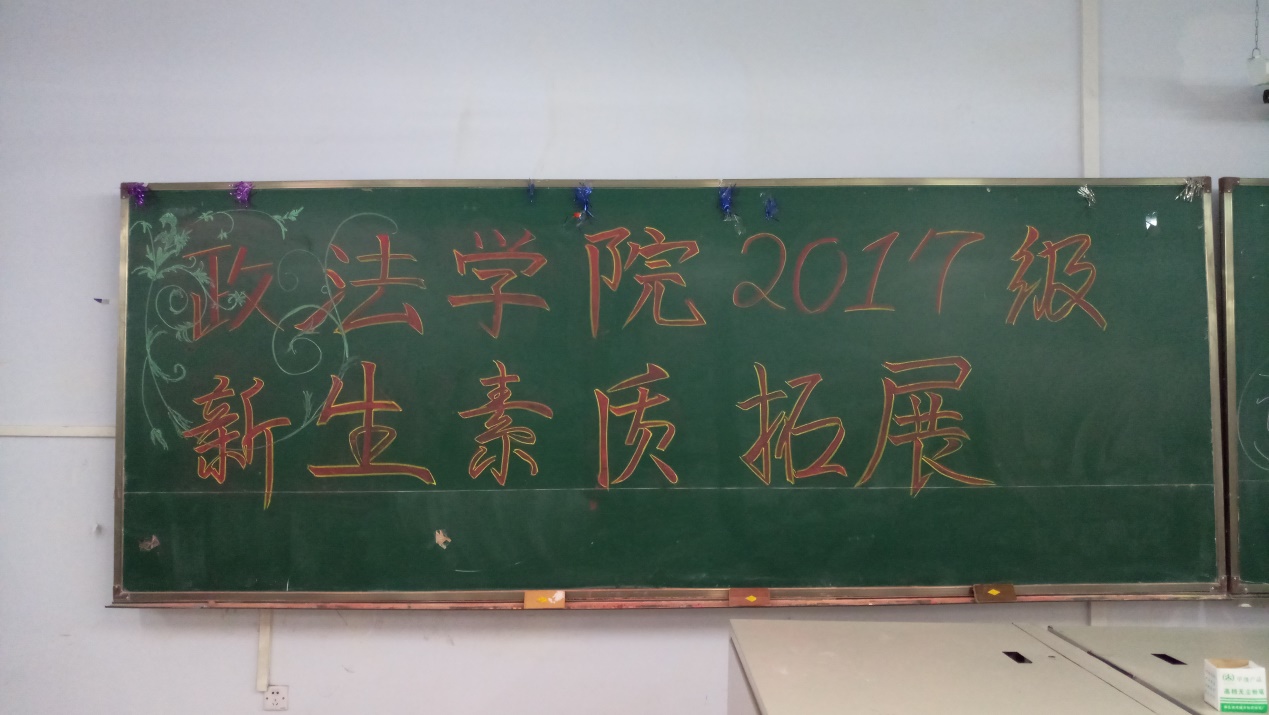 政法学院2017级
新生素质拓展